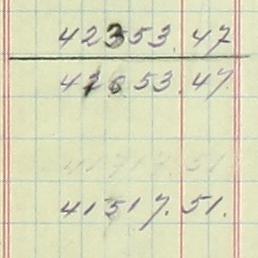 42353.47
42653.47
41517.51.